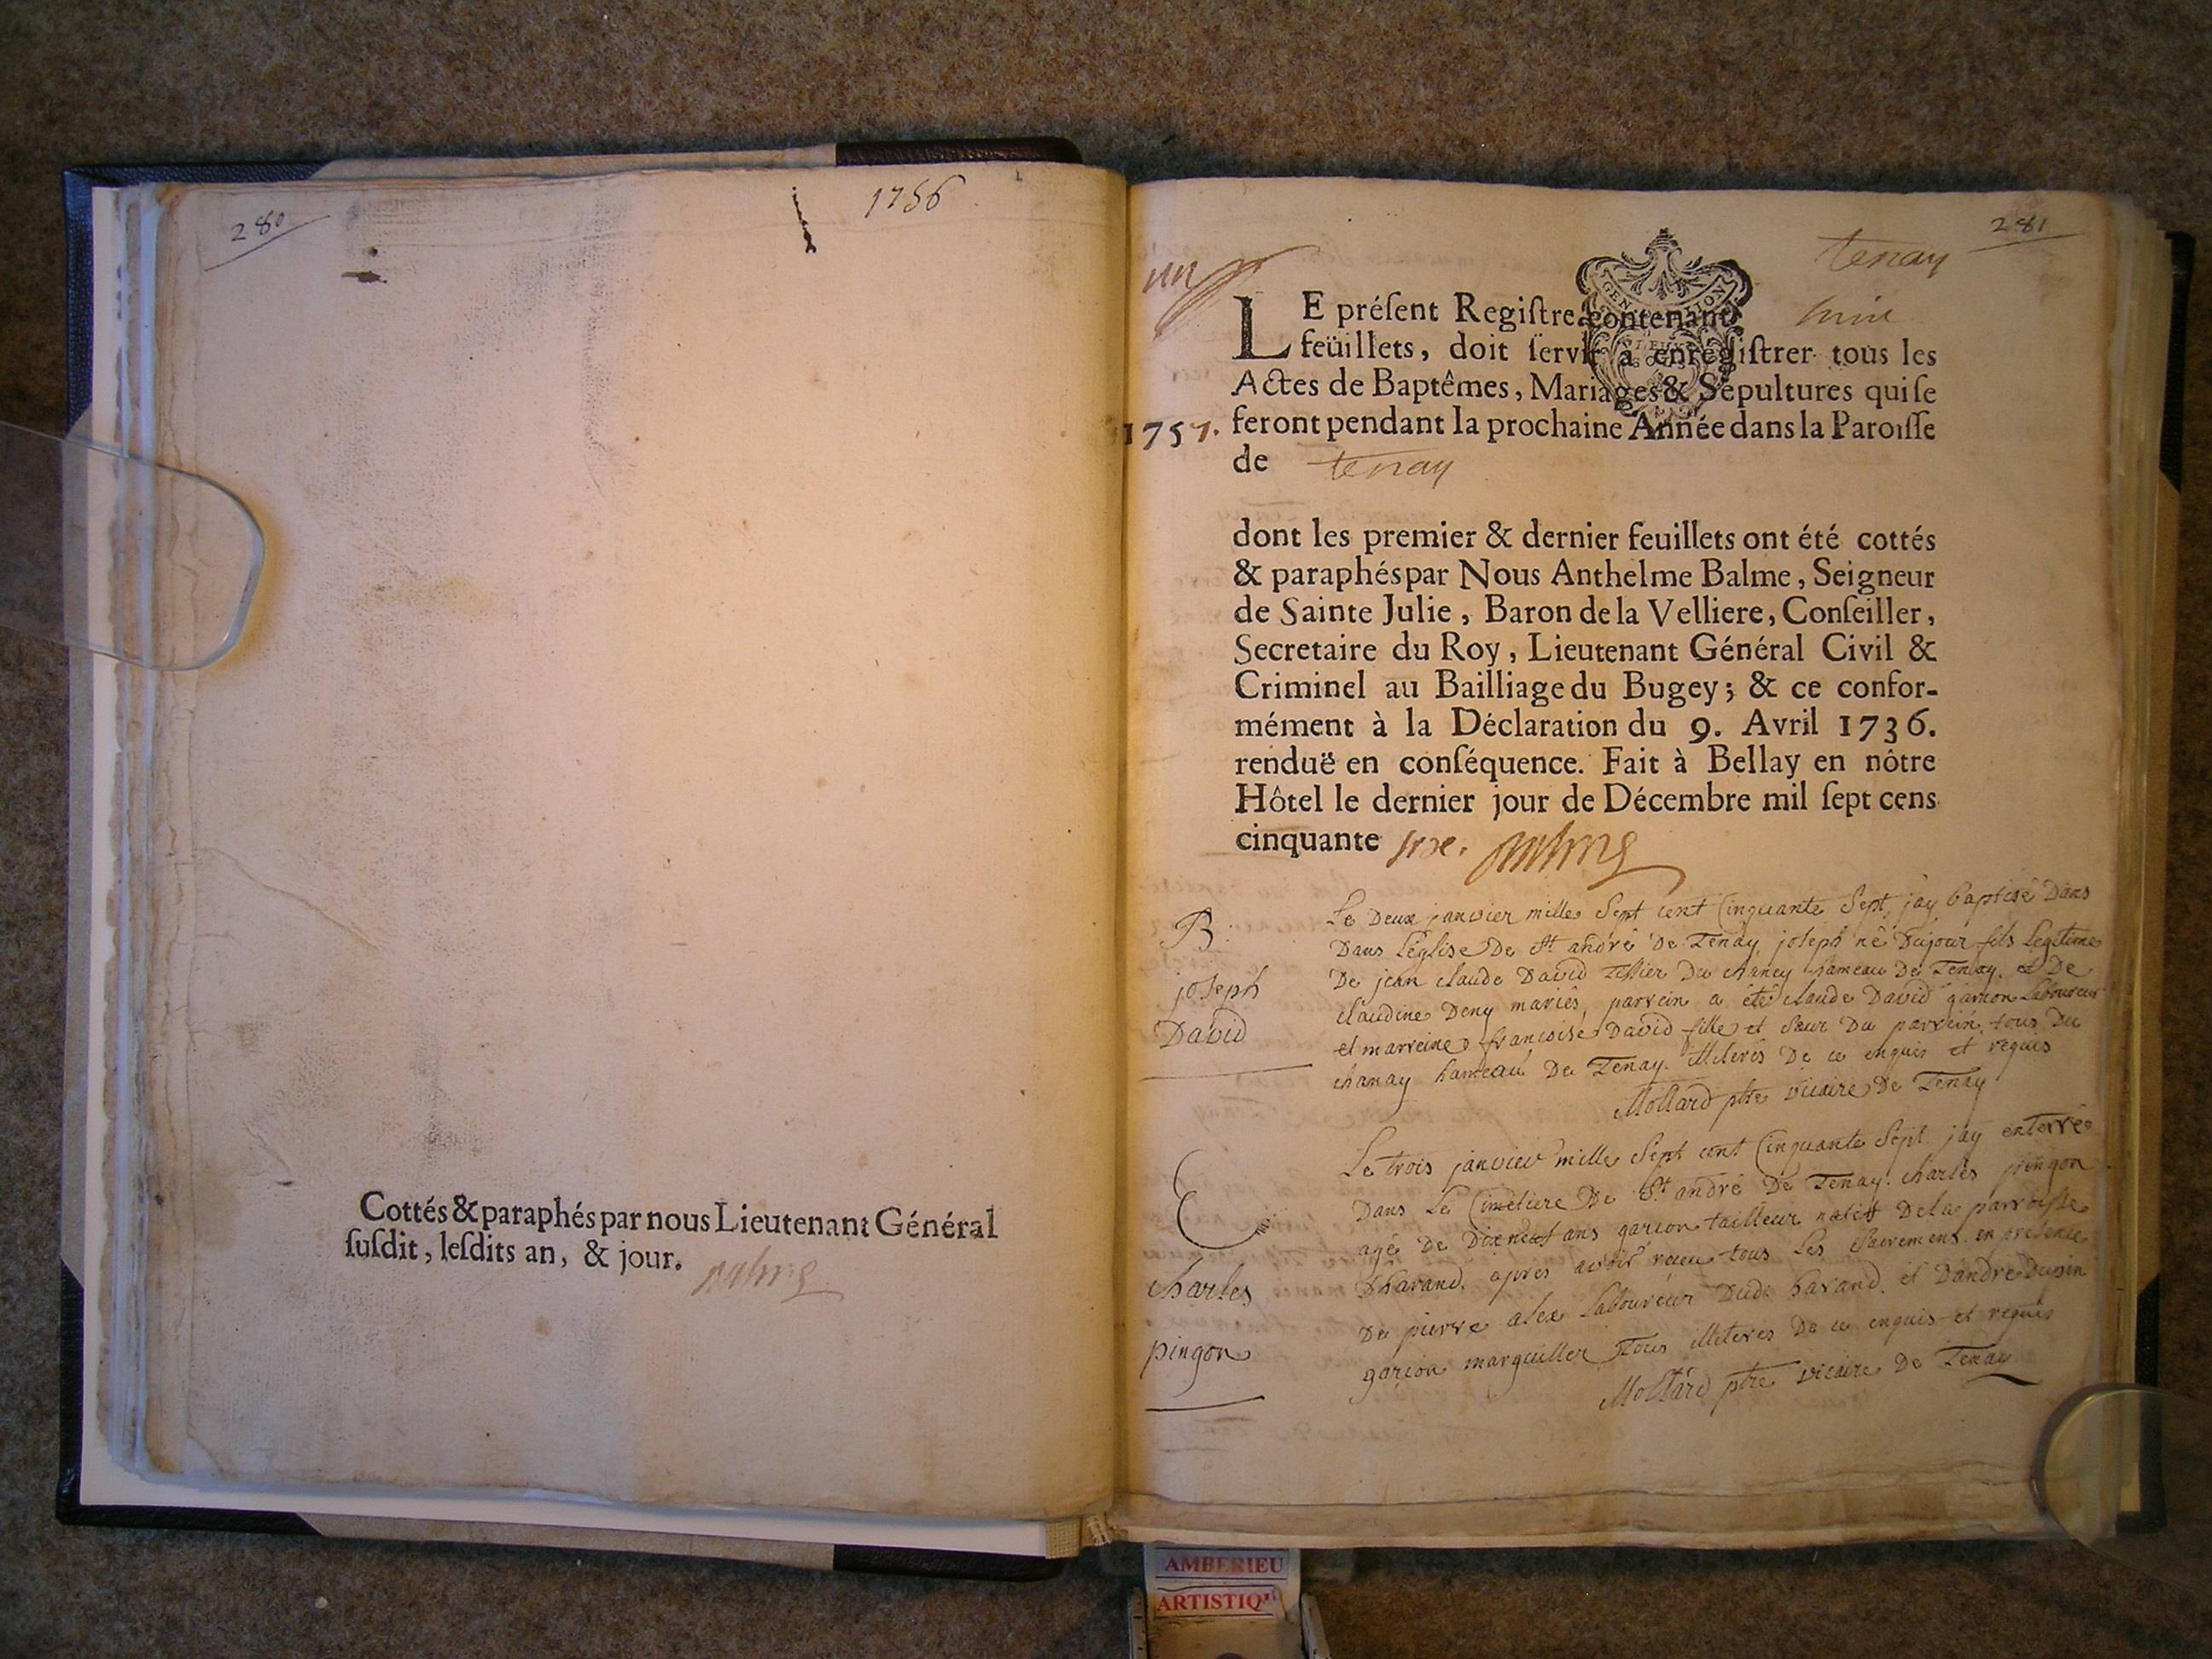 280
1756
Cottés & paraphés par nous Lieutenant Général
ſuſdit, leſdits an, & jour.
281
tenay
un
LE préſent Regiſtre contenant
feüillets, doit ſervir à enregiſtrer tous les
Actes de Baptêmes, Mariages & Sépultures qui ſe
1757. feront pendant la prochaine Année dans la Paroiſſe
de tenay
dont les premier & dernier feuillets ont été cottés
& paraphés par Nous Anthelme Balme, Seigneur
de Sainte Julie, Baron de la Velliere, Conſeiller,
Secretaire du Roy, Lieutenant Général Civil &
Criminel au Bailliage du Bugey; & ce confor-
mément à la Déclaration du 9. Avril 1736.
renduë en conſéquence. Fait à Bellay en nôtre
Hôtel le dernier jour de Décembre mil ſept cens
cinquante
B
joseph
David
Le Deux janvier mille Sept cent Cinquante Sept, jay baptisé Dans
Dans L'église De St andré De Tenay joseph né Dujour fils Legitime
De jean claude David Tissier Du chaney hameau De Tenay. et De
claudine Deny mariés, parrein a été claude David garcon Laboureur
et marreine francoise David fille et Sœur Du parrein. tous Du
chanay hameau De Tenay. illiterés De ce enquis et requis
Mollard ptre vicaire De Tenay
E
charles
pingon
Le trois janvier mille Sept cent Cinquante Sept. jay enterré
Dans Le Cimetiere De St andré De Tenay. charles pingon
agé De Dixneuf ans garcon tailleur natif De la parroisse
Dharand. apres avoir receu tous Les Sacremens. en presence
De pierre alex Laboureur Dudi harand. et Dandré
garçon marguiller Tous illiteres De ce enquis et requis
Mollard ptre vicaire De Tenay
AMBERIEU
ARTISTIQ